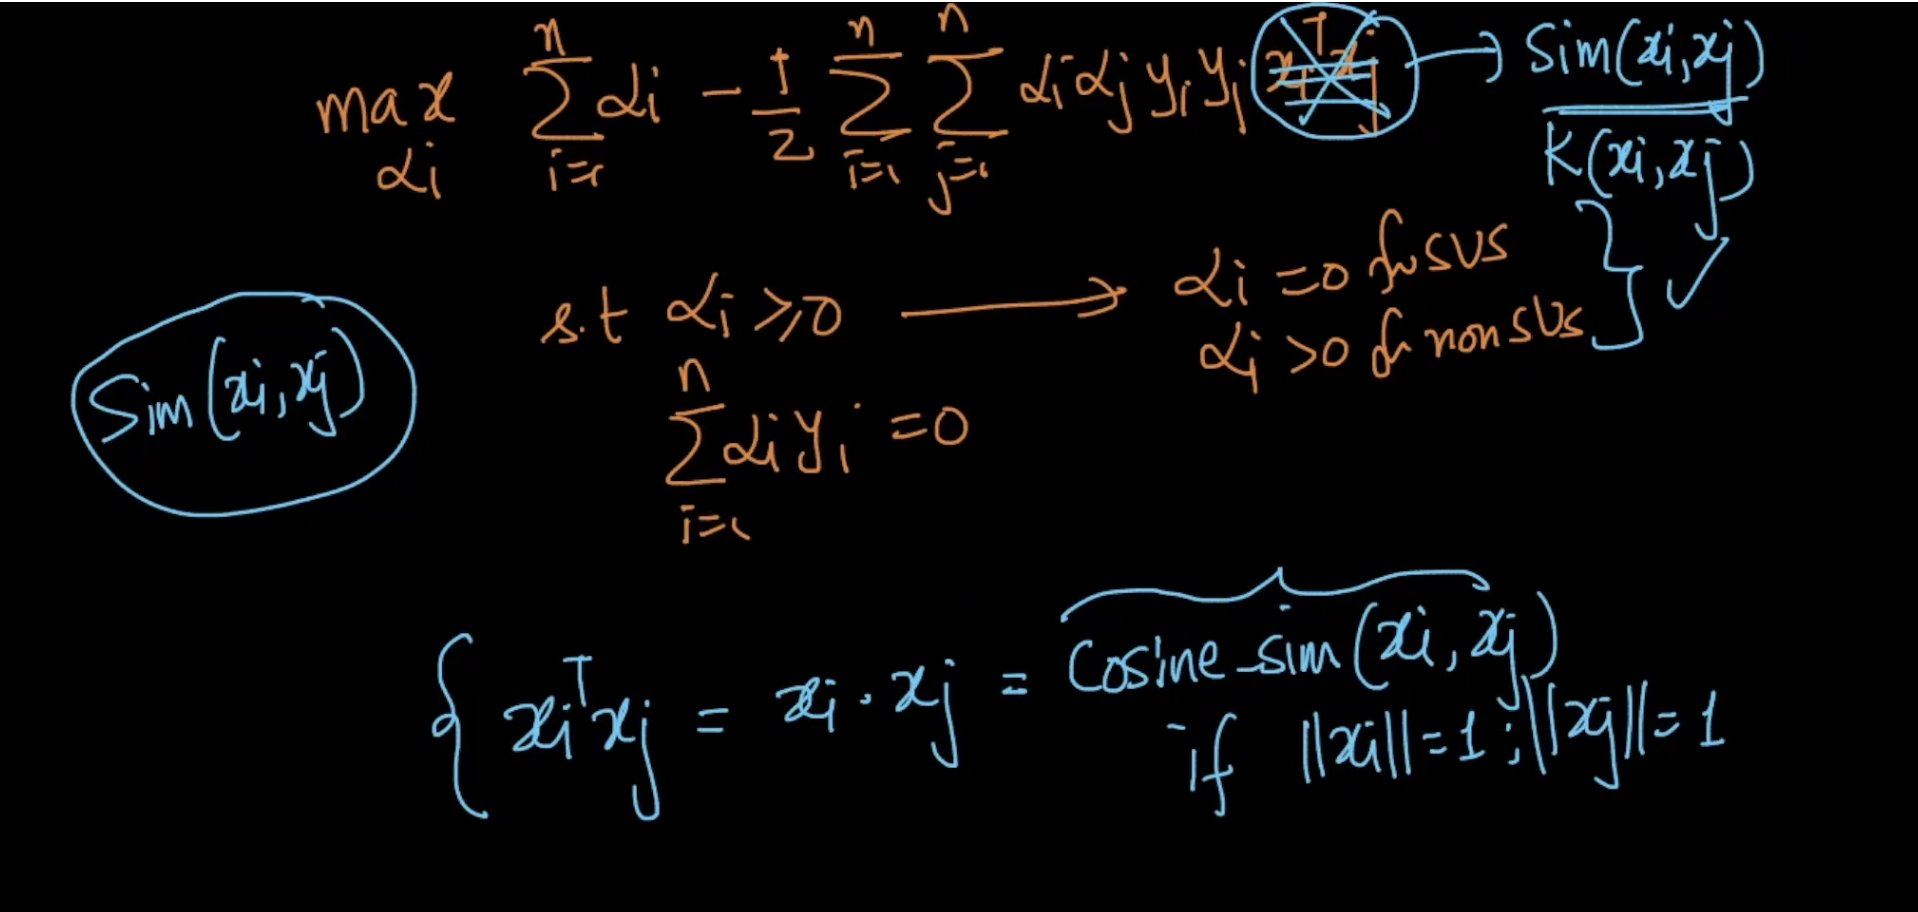 max_{αi} Σ_{i=1}^{n} αi - 1/2 Σ_{i=1}^{n} Σ_{j=1}^{n} αi αj yi yj xi^T xj → Sim(xi,xj)
K(xi,xj)
s.t αi ≥ 0 → αi = 0 for SVs
αi > 0 for non SVs
Sim(xi,xj)
Σ_{i=1}^{n} αi yi = 0
{ xi^T xj = xi · xj = Cosine-sim(xi, xj)
if ||xi|| = 1 ; ||xj|| = 1